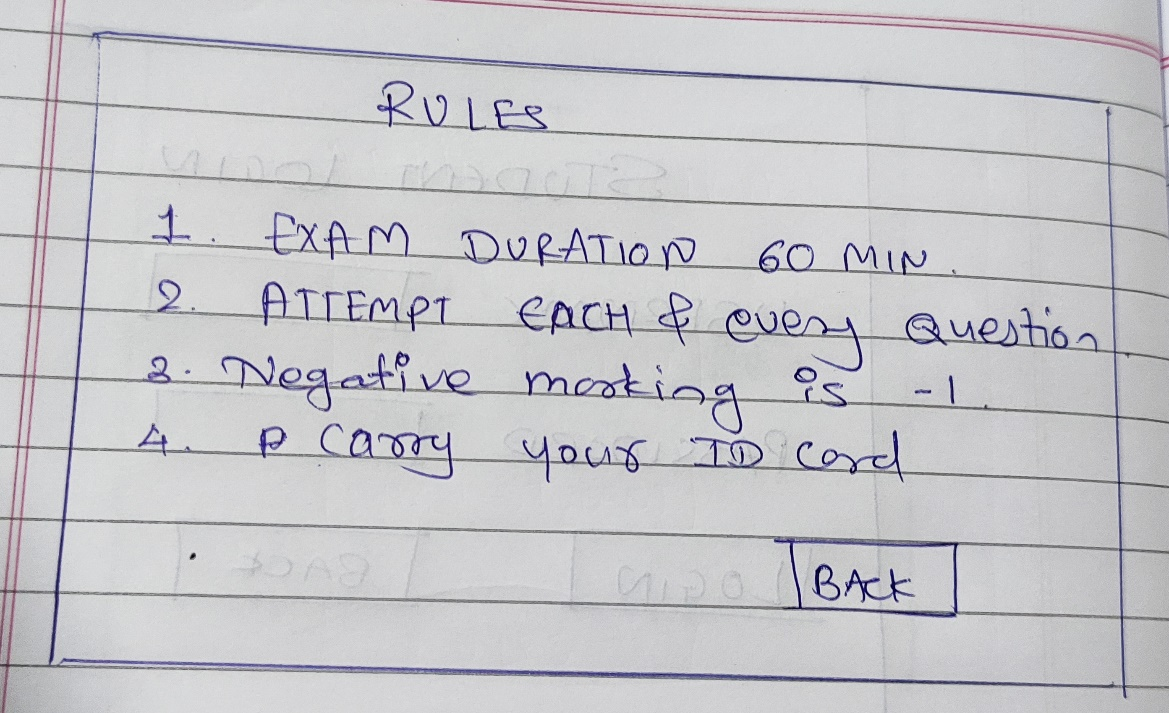 RULES
1. EXAM DURATION 60 MIN.
2. ATTEMPT EACH & every Question
3. Negative marking is -1.
4. P Carry your ID Card
BACK